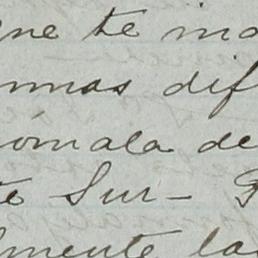 ne te ino
nnas dif
ómala de
te Sur-
lmente la